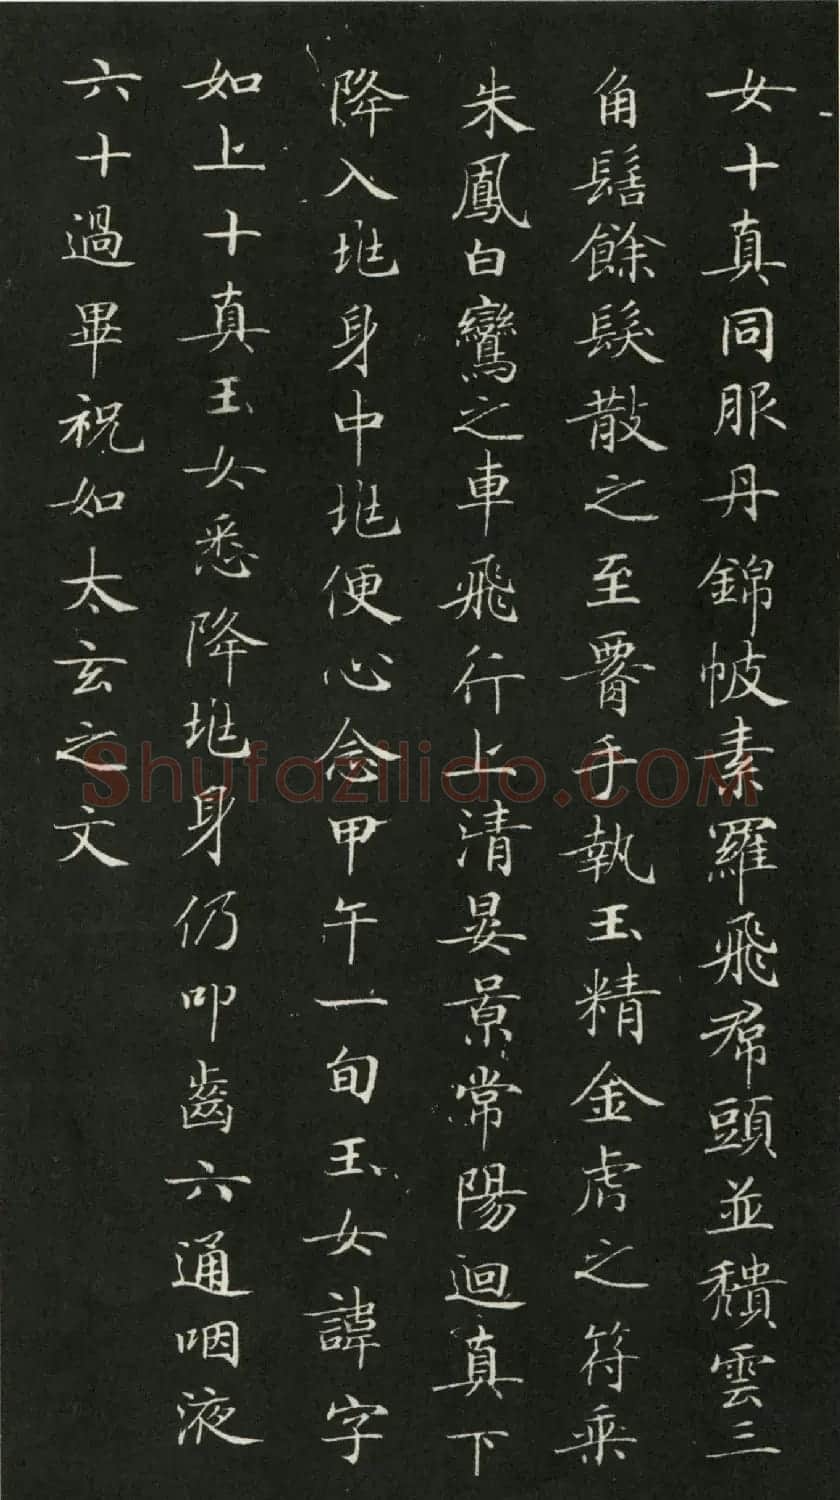 女十真同服丹錦帔素羅飛帬頭並穨雲三
角髻餘髮散之至署手執玉精金虎之符乘
朱鳳白鸞之車飛行上清晏景常陽迴真下
降入地身中地便心念甲午一旬玉女諱字
如上十真玉女悉降地身仍叩齒六通咽液
六十過畢祝如太玄之文
Shufazilido.COM